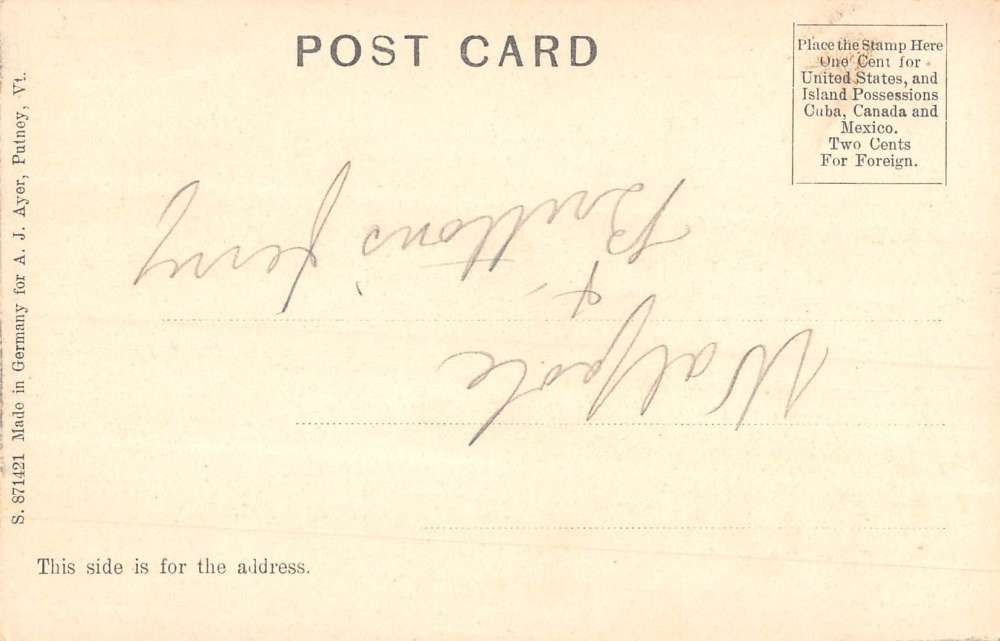 POST CARD
Place the Stamp Here
One Cent for
United States, and
Island Possessions
Cuba, Canada and
Mexico.
Two Cents
For Foreign.
S. 871421 Made in Germany for A. J. Ayer, Putney, Vt.
Walpole
&
Brittons' ferry
This side is for the address.